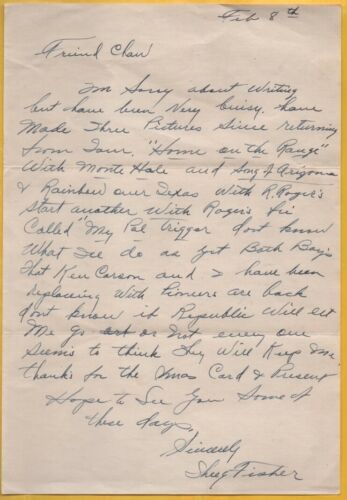 Feb 8th
Friend Clair
I'm Sorry about Writing
but have been Very buisy. have
Made Three Pictures Since returning
from Tour. "Home on the Range"
With Monte Hale and Song of Arizona
& Rainbow over Texas With R. Roger's
Start another With Roger's Fri
Called My Pal Trigger dont know
What I'le do as yet Both Boy's
that Ken Carson and I have been
replacing With Pioneers are back
dont know if Republic Will let
Me go or Not every one
Seem's to think They Will Keep Me
thanks for the Xmas Card & Present
Hope to See You Some of
these days,
Sincerely
Shug Fisher